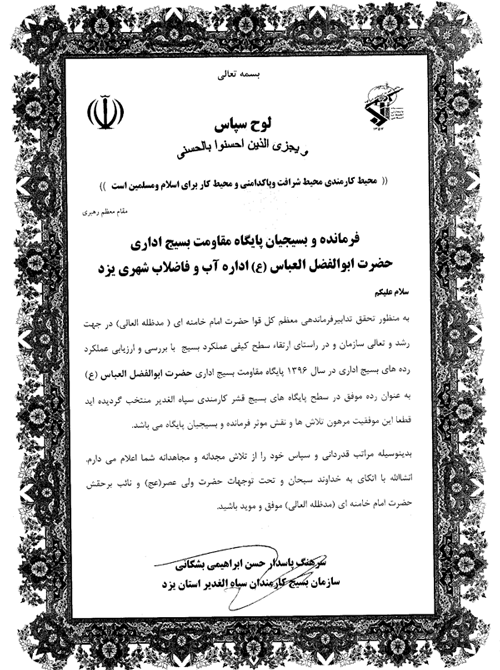 بسمه تعالی
لوح سپاس
ویجزی الذین احسنوا بالحسنی
(( محیط کارمندی محیط شرافت وپاکدامنی و محیط کار برای اسلام ومسلمین است ))
مقام معظم رهبری
فرمانده و بسیجیان پایگاه مقاومت بسیج اداری
حضرت ابوالفضل العباس (ع) اداره آب و فاضلاب شهری یزد
سلام علیکم
به منظور تحقق تدابیرفرماندهی معظم کل قوا حضرت امام خامنه ای ( مدظله العالی) در جهت
رشد و تعالی سازمان و در راستای ارتقاء سطح کیفی عملکرد بسیج با بررسی و ارزیابی عملکرد
رده های بسیج اداری در سال ۱۳۹۶ پایگاه مقاومت بسیج اداری حضرت ابوالفضل العباس (ع)
به عنوان رده موفق در سطح پایگاه های بسیج قشر کارمندی سپاه الغدیر منتخب گردیده اید
قطعا این موفقیت مرهون تلاش ها و نقش موثر فرمانده و بسیجیان پایگاه می باشد.
بدینوسیله مراتب قدردانی و سپاس خود را از تلاش مجدانه و مجاهدانه شما اعلام می دارم.
انشاالله با اتکای به خداوند سبحان و تحت توجهات حضرت ولی عصر(عج) و نائب برحقش
حضرت امام خامنه ای (مدظله العالی) موفق و موید باشید.
سرهنگ پاسدار حسن ابراهیمی بشکانی
سازمان بسیج کارمندان سپاه الغدیر استان یزد